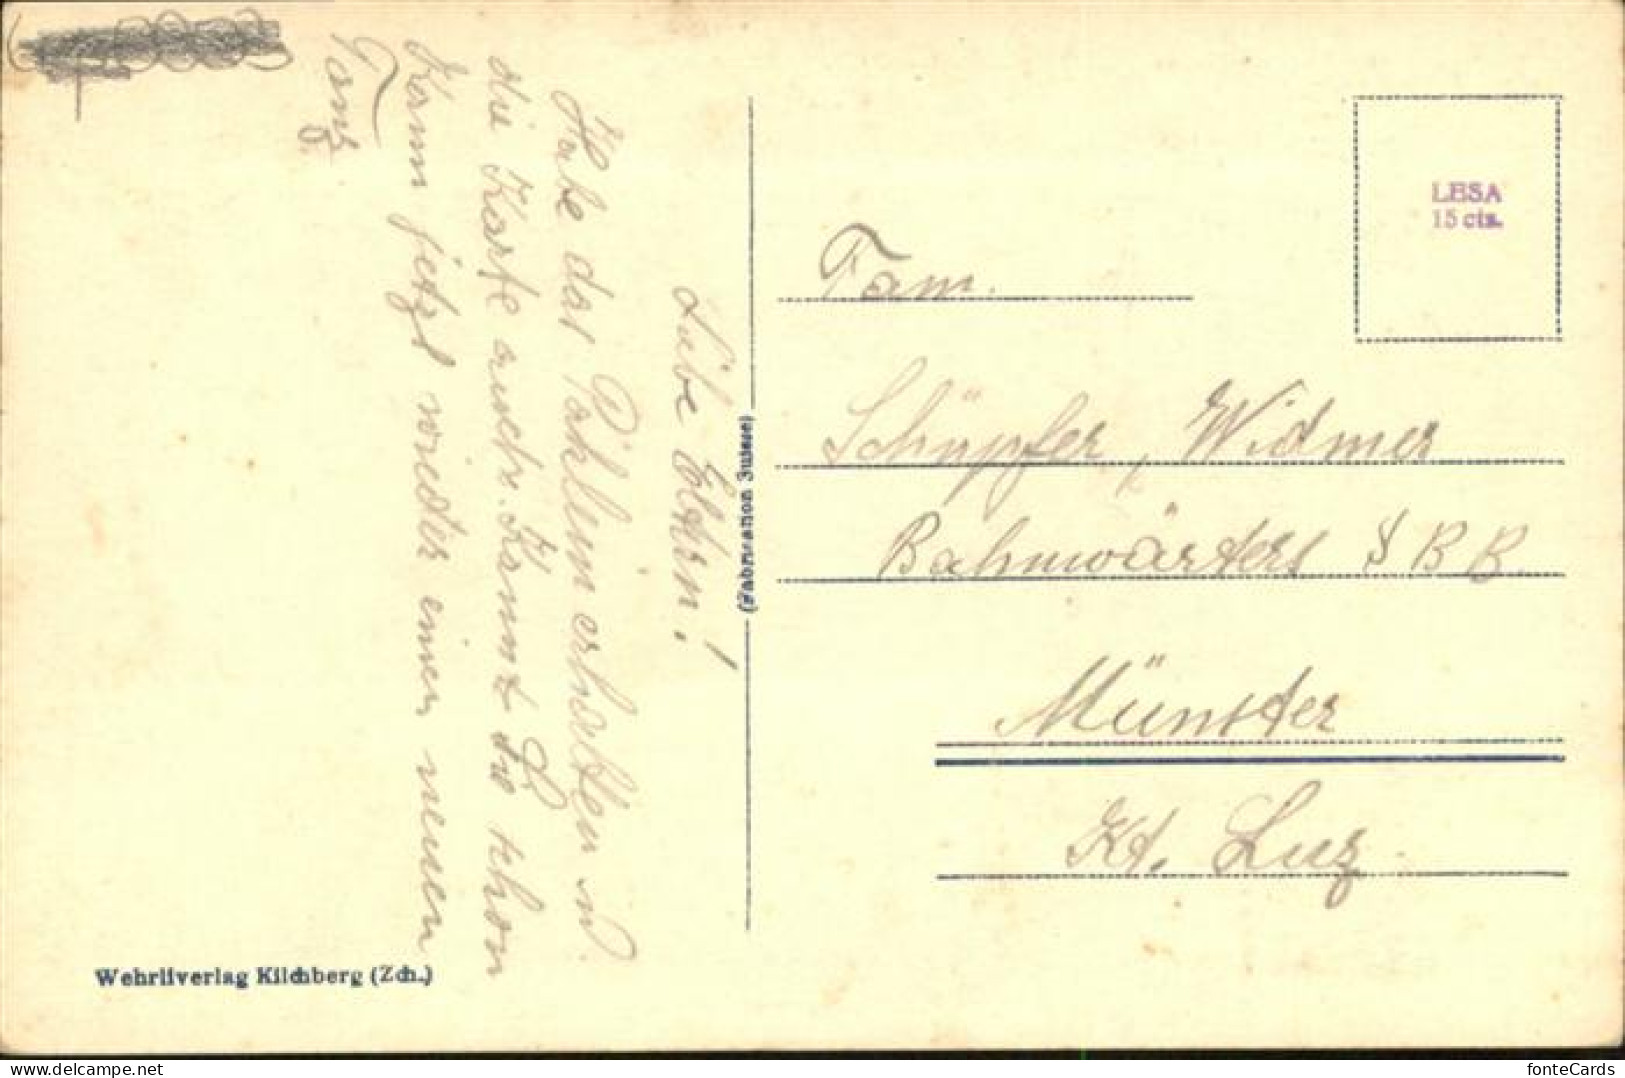 Liebe Eltern!
Habe das Päklein erhalten u.
die Karte auch. Kannst du schon
Kann jetzt wieder einen neuen
Tanz
LESA
15 cts.
Fam.
Schüpfer, Widmer
Bahnwärters S B B.
Münster
Kt. Luz.
(Fabrication Suisse)
Wehrliverlag Kilchberg (Zch.)
delcampe.net
fonteCards